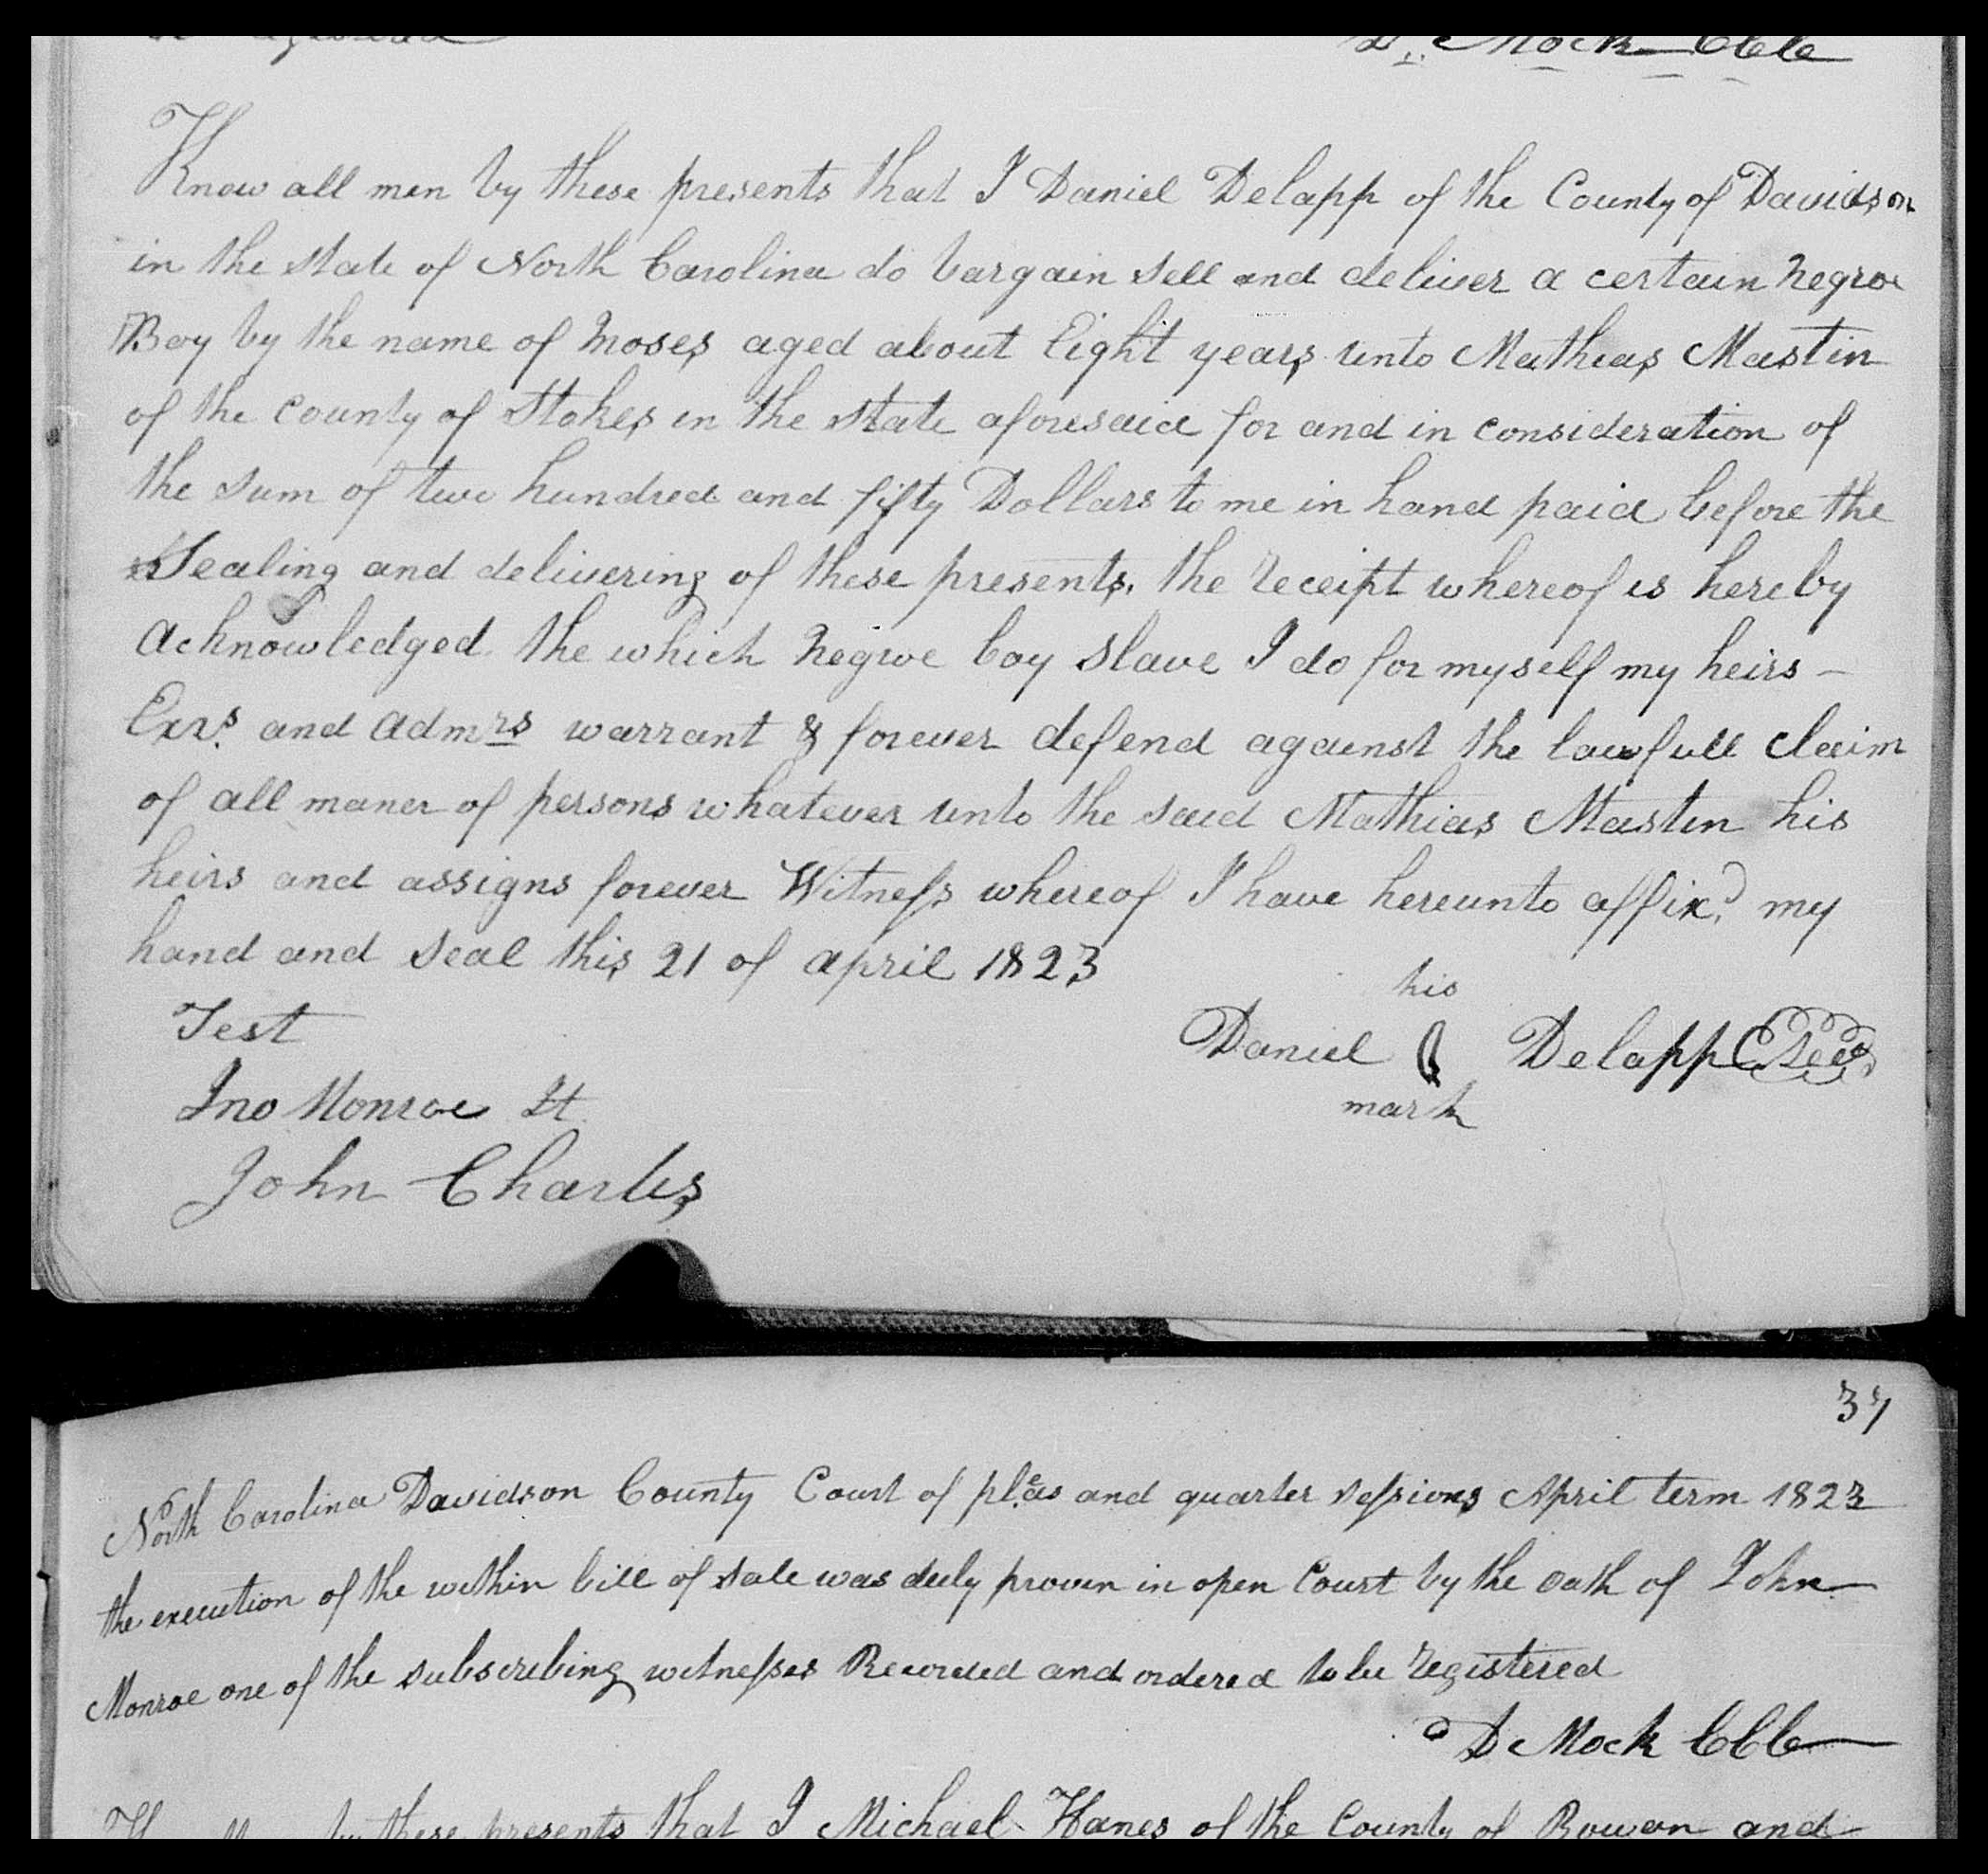 D. Mock CCC
Know all men by these presents that I Daniel Delapp of the County of Davidson
in the state of North Carolina do bargain sell and deliver a certain negroe
Boy by the name of Moses aged about Eight years unto Mathias Mastin
of the County of Stokes in the state aforesaid for and in consideration of
the sum of two hundred and fifty Dollars to me in hand paid before the
Sealing and delivering of these presents, the receipt whereof is hereby
acknowledged the which negroe boy slave I do for myself my heirs —
Exrs. and admrs warrant & forever defend against the lawfull claim
of all maner of persons whatever unto the said Mathias Mastin his
heirs and assigns forever Witness whereof I have hereunto affixd. my
hand and seal this 21 of april 1823
his
Test
Daniel Delapp Seal
Jno Monroe
mark
John Charles
37
North Carolina Davidson County Court of pleas and quarter sessions April term 1823
the execution of the within bill of sale was duly proven in open Court by the oath of John
Monroe one of the subscribing witnesses Recorded and ordered to be registered
D Mock CCC
these presents that I Michael Hanes of the County of Rowan and